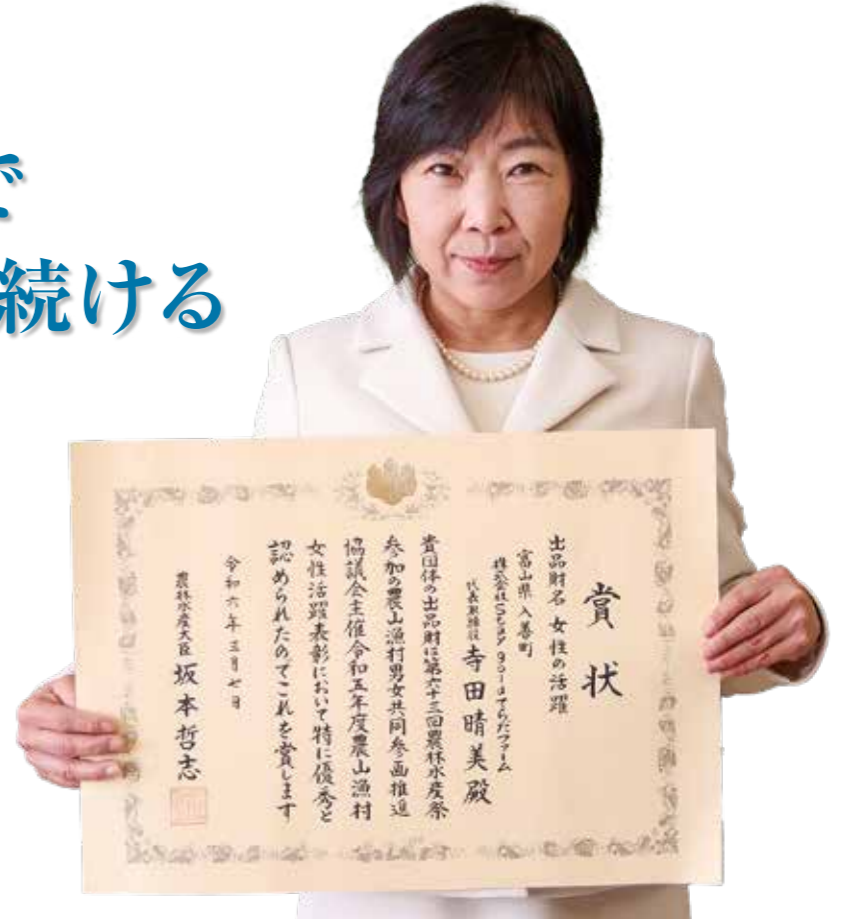 で
続ける
賞状
出品財名 女性の活躍
富山県入善町
株式会社Stay goldてらだファーム
代表取締役 寺田晴美殿
貴団体の出品財は第六十三回農林水産祭
参加の農山漁村男女共同参画推進
協議会主催令和五年度農山漁村
女性活躍表彰において特に優秀と
認められたのでこれを賞します
令和六年三月七日
農林水産大臣 坂本哲志